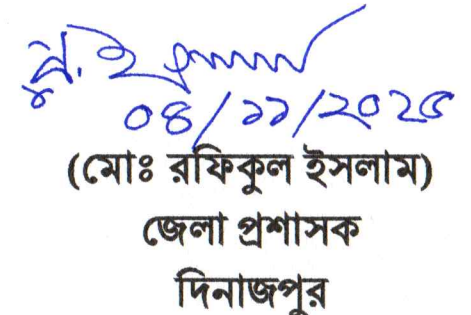 ০৪/১১/২০২৫
(মোঃ রফিকুল ইসলাম)
জেলা প্রশাসক
দিনাজপুর